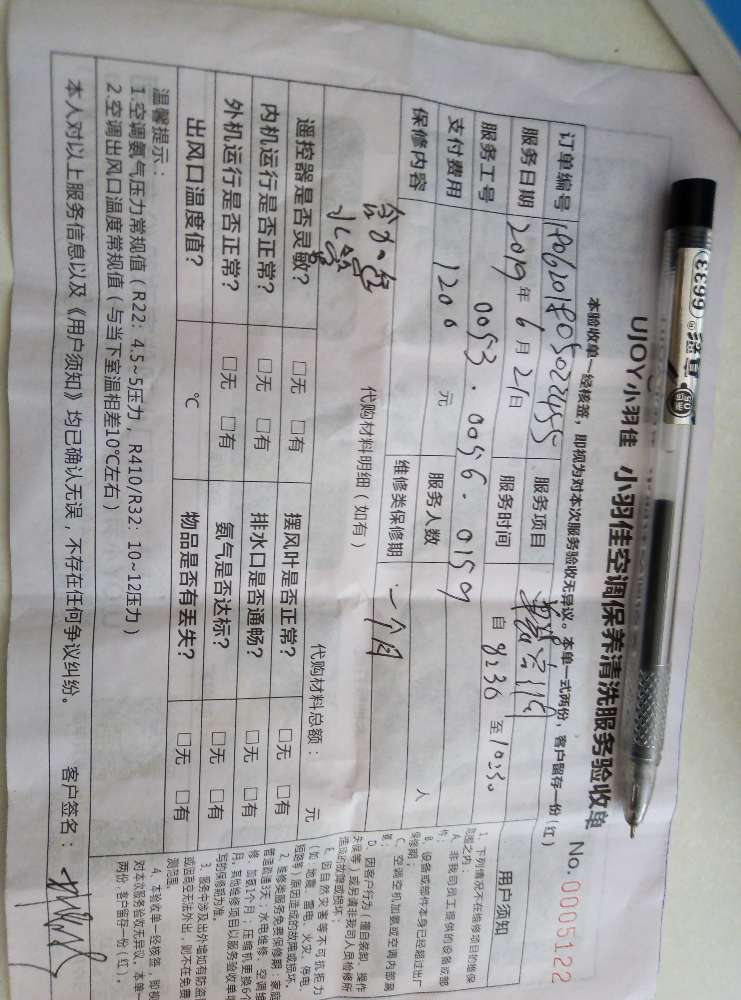 UJOY小羽佳 小羽佳空调保养清洗服务验收单
No.0005122
本验收单一经核签，即视为对本次服务验收无异议。本单一式两份，客户留存一份（红）
订单编号
服务项目
服务日期 2019年6月21日
服务时间 自 8:30 至 10:30
服务工号 0053.0056.0159
支付费用 1200 元
服务人数 人
保修内容
维修类保修期 一个月
代购材料明细（如有）
代购材料总额： 元
遥控器是否灵敏？ □无 □有
摆风叶是否正常？ □无 □有
内机运行是否正常？ □无 □有
排水口是否通畅？ □无 □有
外机运行是否正常？ □无 □有
氨气是否达标？ □无 □有
出风口温度值？ ℃
物品是否有丢失？ □无 □有
温馨提示：
1.空调氨气压力常规值（R22：4.5~5压力，R410/R32：10~12压力）
2.空调出风口温度常规值（与当下室温相差10℃左右）
本人对以上服务信息以及《用户须知》均已确认无误，不存在任何争议纠纷。
客户签名：
用户须知
1. 下列情况不在维修项目的维保
范围之内：
A. 非我司员工提供的设备或部
件；
B. 设备或部件本身已经超过出厂
保修期；
C. 空调空机加氨或空调内部漏
氨；
D. 因客户行为（擅自装卸、操作
失误等）或另请非我司人员检修所
造成的故障或损坏；
E. 因自然灾害等不可抗拒力
（如：地震、雷电、火灾、停电、
短路等）原因造成的故障或损坏。
2. 维修类服务免费保修期：家庭
管道疏通3天；水电维修、空调维
修、加氨1个月；压缩机更换6个
月；其他维修项目以服务验收单填
写的保修期为准。
3. 服务中涉及出外墙如有防盗
4. 本验收单一经核签，即视
对本次服务验收无异议。本单一
两份，客户留存一份（红）。